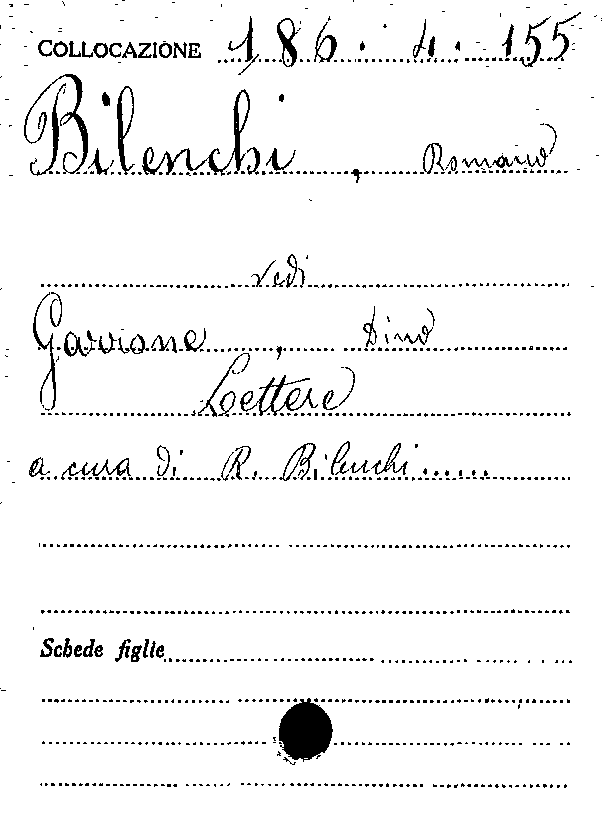 COLLOCAZIONE 186. 4. 155
Bilenchi, Romano
vedi
Garrone, Dino
Lettere
a cura di R. Bilenchi......
Schede figlie